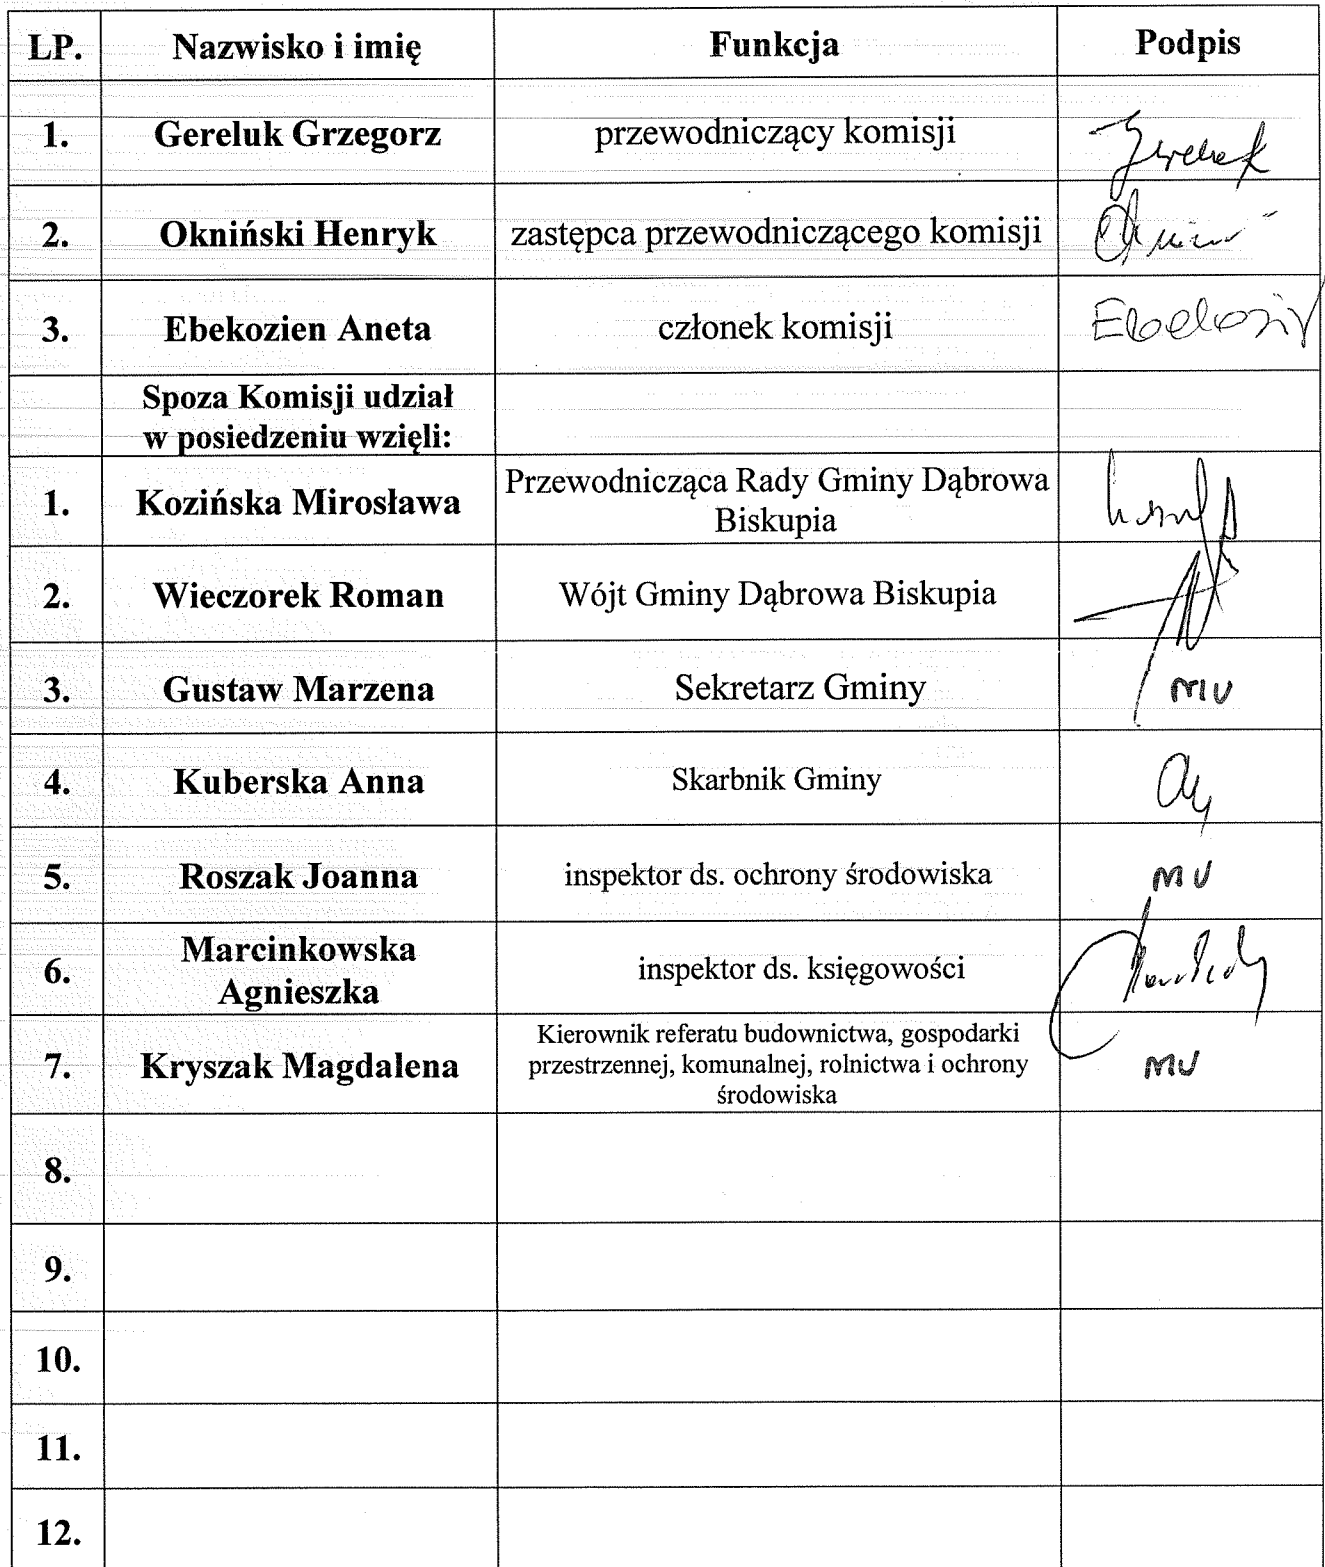 LP. Nazwisko i imię Funkcja Podpis
1. Gereluk Grzegorz przewodniczący komisji
2. Okniński Henryk zastępca przewodniczącego komisji
3. Ebekozien Aneta członek komisji
Spoza Komisji udział
w posiedzeniu wzięli:
1. Kozińska Mirosława Przewodnicząca Rady Gminy Dąbrowa
Biskupia
2. Wieczorek Roman Wójt Gminy Dąbrowa Biskupia
3. Gustaw Marzena Sekretarz Gminy
4. Kuberska Anna Skarbnik Gminy
5. Roszak Joanna inspektor ds. ochrony środowiska
6. Marcinkowska
Agnieszka inspektor ds. księgowości
7. Kryszak Magdalena Kierownik referatu budownictwa, gospodarki
przestrzennej, komunalnej, rolnictwa i ochrony
środowiska
8.
9.
10.
11.
12.